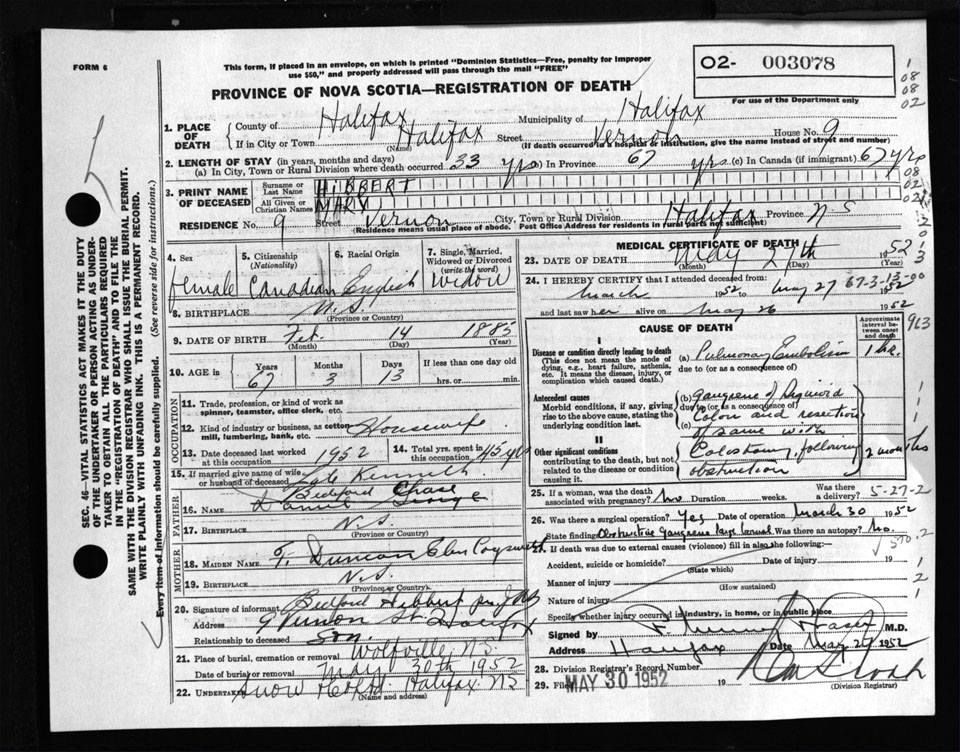 FORM 6
This form, if placed in an envelope, on which is printed "Dominion Statistics—Free, penalty for improper
use $50," and properly addressed will pass through the mail "FREE"
O2- 003078
For use of the Department only
PROVINCE OF NOVA SCOTIA—REGISTRATION OF DEATH
1. PLACE OF DEATH
County of Halifax Municipality of Halifax
If in City or Town Halifax Street Vernon House No. 9
(If death occurred in a hospital or institution, give the name instead of street and number)
2. LENGTH OF STAY (in years, months and days)
(a) In City, Town or Rural Division where death occurred 33 yrs (b) In Province 67 yrs (c) In Canada (if immigrant) 67 yrs
3. PRINT NAME OF DECEASED
Surname or Last Name HIBBERT
All Given or Christian Names MARY
RESIDENCE No. 9 Street Vernon City, Town or Rural Division Halifax Province N S
(Residence means usual place of abode. Post Office Address for residents in rural parts not sufficient)
4. Sex female
5. Citizenship (Nationality) Canadian
6. Racial Origin English
7. Single, Married, Widowed or Divorced (write the word) Widow
8. BIRTHPLACE N.S.
(Province or Country)
9. DATE OF BIRTH Feb. 14 1885
(Month) (Day) (Year)
10. AGE in Years 67 Months 3 Days 13 If less than one day old
hrs. or min.
OCCUPATION
11. Trade, profession, or kind of work as spinner, teamster, office clerk, etc.
12. Kind of industry or business, as cotton mill, lumbering, bank, etc. Housewife
13. Date deceased last worked at this occupation 1952
14. Total yrs. spent in this occupation 45 yrs
15. If married give name of wife or husband of deceased Late Kenneth
Bedford Chase
FATHER
16. NAME Daniel
17. Birthplace N.S.
(Province or Country)
MOTHER
18. MAIDEN NAME Duncan
19. BIRTHPLACE N.S.
(Province or Country)
20. Signature of informant Bedford Hibbert per
Address 9 Vernon St. Halifax
Relationship to deceased Son.
21. Place of burial, cremation or removal Wolfville, N.S.
Date of burial or removal May 30th 1952
22. Undertaker Snow & Co Ltd. Halifax. NS
(Name and address)
MEDICAL CERTIFICATE OF DEATH
23. DATE OF DEATH May 27th 1952
(Month) (Day) (Year)
24. I HEREBY CERTIFY that I attended deceased from:
March 1952 to May 27 1952
67-3-13-00
and last saw her alive on May 26 1952
CAUSE OF DEATH
Approximate interval between onset and death
963
I
Disease or condition directly leading to death
(This does not mean the mode of dying, e.g., heart failure, asthenia, etc. It means the disease, injury, or complication which caused death.)
(a) Pulmonary Embolism 1 hr.
due to (or as a consequence of)
Antecedent causes
Morbid conditions, if any, giving rise to the above cause, stating the underlying condition last.
(b) Gangrene of Sigmoid
due to (or as a consequence of)
Colon and resection
(c) of same with
II
Other significant conditions
contributing to the death, but not related to the disease or condition causing it.
Colostomy, following 2 months
obstruction
25. If a woman, was the death associated with pregnancy? No Duration weeks. Was there a delivery? 5-27-2
26. Was there a surgical operation? Yes Date of operation March 30 1952
State findings Obstructive gangrene Was there an autopsy? No.
570.2
27. If death was due to external causes (violence) fill in also the following:
Accident, suicide or homicide? Date 19
(State which)
Manner of injury
(How sustained)
Nature of injury
Specify whether injury occurred in industry, in home, or in public place
Signed by Fraser M.D.
Address Halifax Date May 1952
28. Division Registrar's Record Number
29. Filed MAY 30 1952 19
(Division Registrar)
SEC. 46—VITAL STATISTICS ACT MAKES IT THE DUTY
OF THE UNDERTAKER OR PERSON ACTING AS UNDER-
TAKER TO OBTAIN ALL THE PARTICULARS REQUIRED
IN THE "REGISTRATION OF DEATH" AND TO FILE THE
SAME WITH THE DIVISION REGISTRAR WHO SHALL ISSUE THE BURIAL PERMIT.
WRITE PLAINLY WITH UNFADING INK. THIS IS A PERMANENT RECORD.
Every item of information should be carefully supplied. (See reverse side for instructions.)